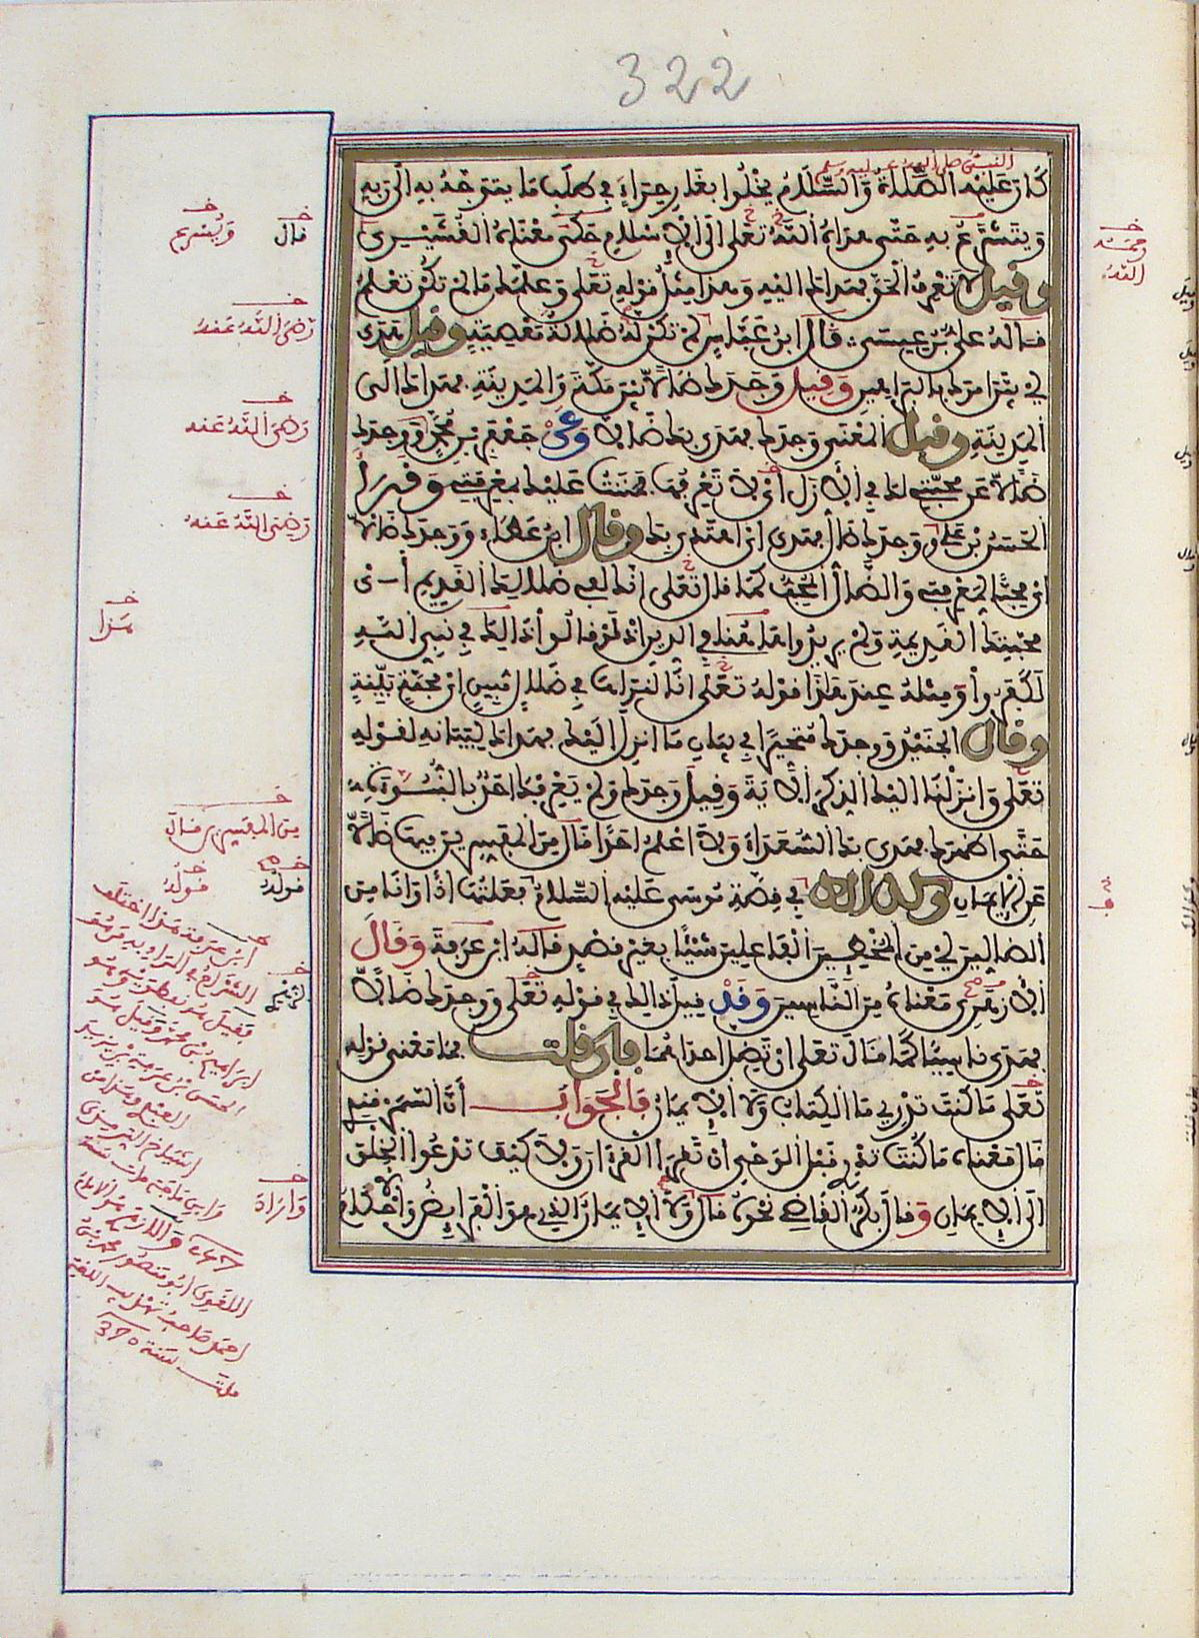 322
النبىء صلى الله عليه وسلم
كان عليه الصلاة والسلام يخلوا بغار حراء في طلب ما يتوجه به الى ربه
ويتشرع به حتى هداه الله تعلى الى الاسلام حكى معناه القشيرى
وقيل لا تعرف الحق فهداك اليه وهذا مثل قوله تعلى وعلمك ما لم تكن تعلم
قاله على بن عيسى قال ابن عباس لم تكن له ضلالة معصية وقيل هدى
اي بين امرك بالبراهين وقيل وجدك ضالا بين مكة والمدينة فهداك الى
المدينة وقيل المعنى وجدك فهدى بك ضالا وعن جعفر بن محمد ووجدك
ضالا عن محبتي لك في الازل اي لا تعرفها فمننت عليك بمعرفتي وقرأ
الحسن بن على ووجدك ضال فهدى اي اهتدى بك وقال ابن عطاء ووجدك ضالا
اي محبا لمعرفتي والضال المحب كما قال تعلى انك لفي ضلالك القديم أي
محبتك القديمة ولم يريدوا هاهنا في الدين اذ لو قالوا ذلك في نبي الله
لكفروا ومثله عند هذا قوله تعلى انا لنراها في ضلال مبين اي محبة بينة
وقال الجنيد ووجدك متحيرا في بيان ما انزل اليك فهداك لبيانه لقوله
تعلى وانزلنا اليك الذكر الاية وقيل وجدك لم يعرفك احد بالنبوة
حتى اظهرك فهدى بك السعداء ولا اعلم احدا قال من المفسرين فيها ضالا
عن الايمان وكذلك في قصة موسى عليه السلام فعلتها اذا وانا من
الضالين اي من المخطئين الفاعلين شيئا بغير قصد قاله ابن عرفة وقال
الازهرى معناه من الناسين وقد قيل ذلك في قوله تعلى ووجدك ضالا
فهدى ناسيا كما قال تعلى ان تضل احداهما فان قلت فما معنى قوله
تعلى ما كنت تدري ما الكتاب ولا الايمان فالجواب أن السمرقندي
قال معناه ما كنت تدري قبل الوحي ان تقرأ القرءان ولا كيف تدعوا الخلق
الى الايمان وقال بكر القاضي نحوه قال ولا الايمان الذي هو الفرايض والاحكام
قال
رضى الله عنه
رضى الله عنه
رضى الله عنه
هذا
من المفسرين قال
قوله
قوله
ابن عرفة هذا اختلف
ابراهيم بن محمد وقيل هو
الحسن بن عرفة بن يزيد
اللغوى ابو منصور محمد بن
احمد صاحب تهذيب اللغة
مات سنة 370
رحمه
الله